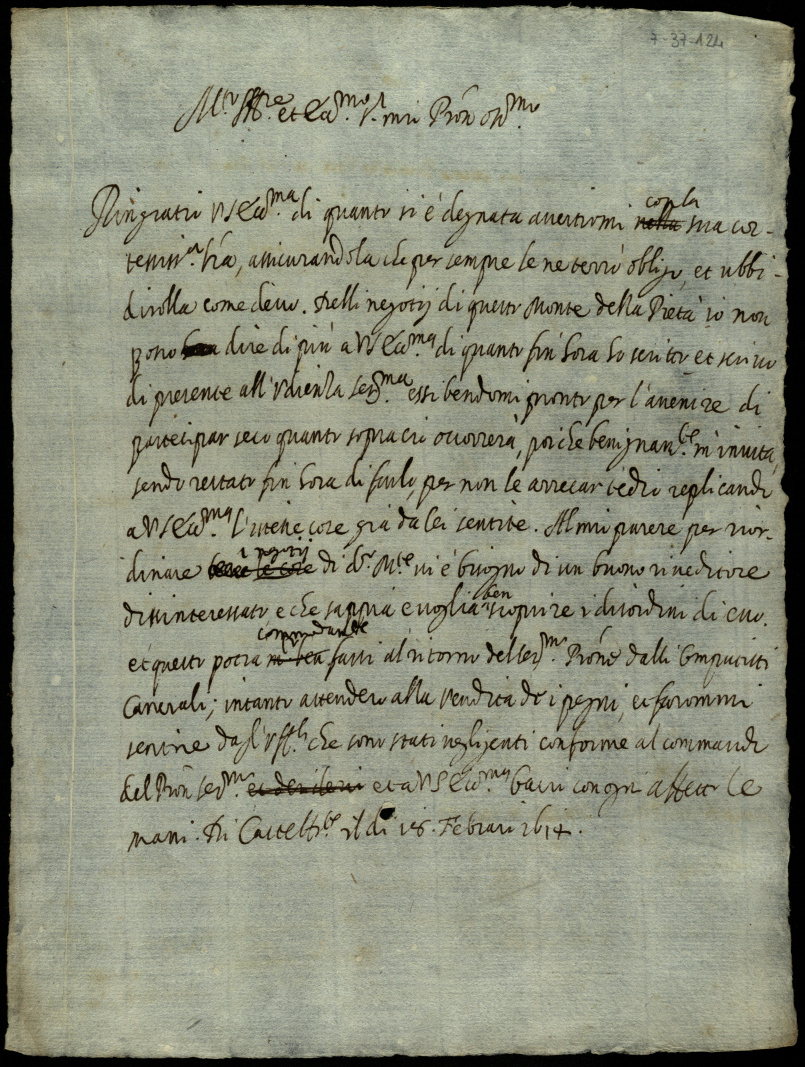 7-37-124
Molto Ill.re et Ecc.mo S.r mio Prōn oss.mo
con la
Ringratio VS Ecc.ma di quanto si è degnata avertirmi nella sua cor-
tesiss.a l'ra, assicurandola che per sempre le ne terrò obligo, et ubbi-
dirolla come devo. Delli negotij di questo Monte della Pietà io non
posso dire di più a VS Ecc.ma di quanto fin'hora ho scritto et scrivo
di presente all'Altezza Ser.ma essibendomi pronto per l'avenire di
participar seco quanto sopra ciò occorrerà, poiché benignam.te m'invita,
sendo restato fin hora di farlo, per non le arrecar tedio replicando
a VS Ecc.ma l'istesse cose già da lei sentite. Al mio parere per rior-
i negotij
dinare le cose di d.o M.te vi è bisogno di un buono riveditore
ben
dissinteressato e che sappia e voglia scoprire i disordini di esso.
commandante
et questo potrà farsi al ritorno del Ser.mo Prōne dalli
Camerali; intanto attenderò alla vendita de i pegni, et farommi
sentire da gl'Uff.li che sono stati negligenti conforme al commando
del Prōn Ser.mo et a VS Ecc.ma bacio con ogni affetto le
mani. Di Castell.
il di 18. Febraro 1614.